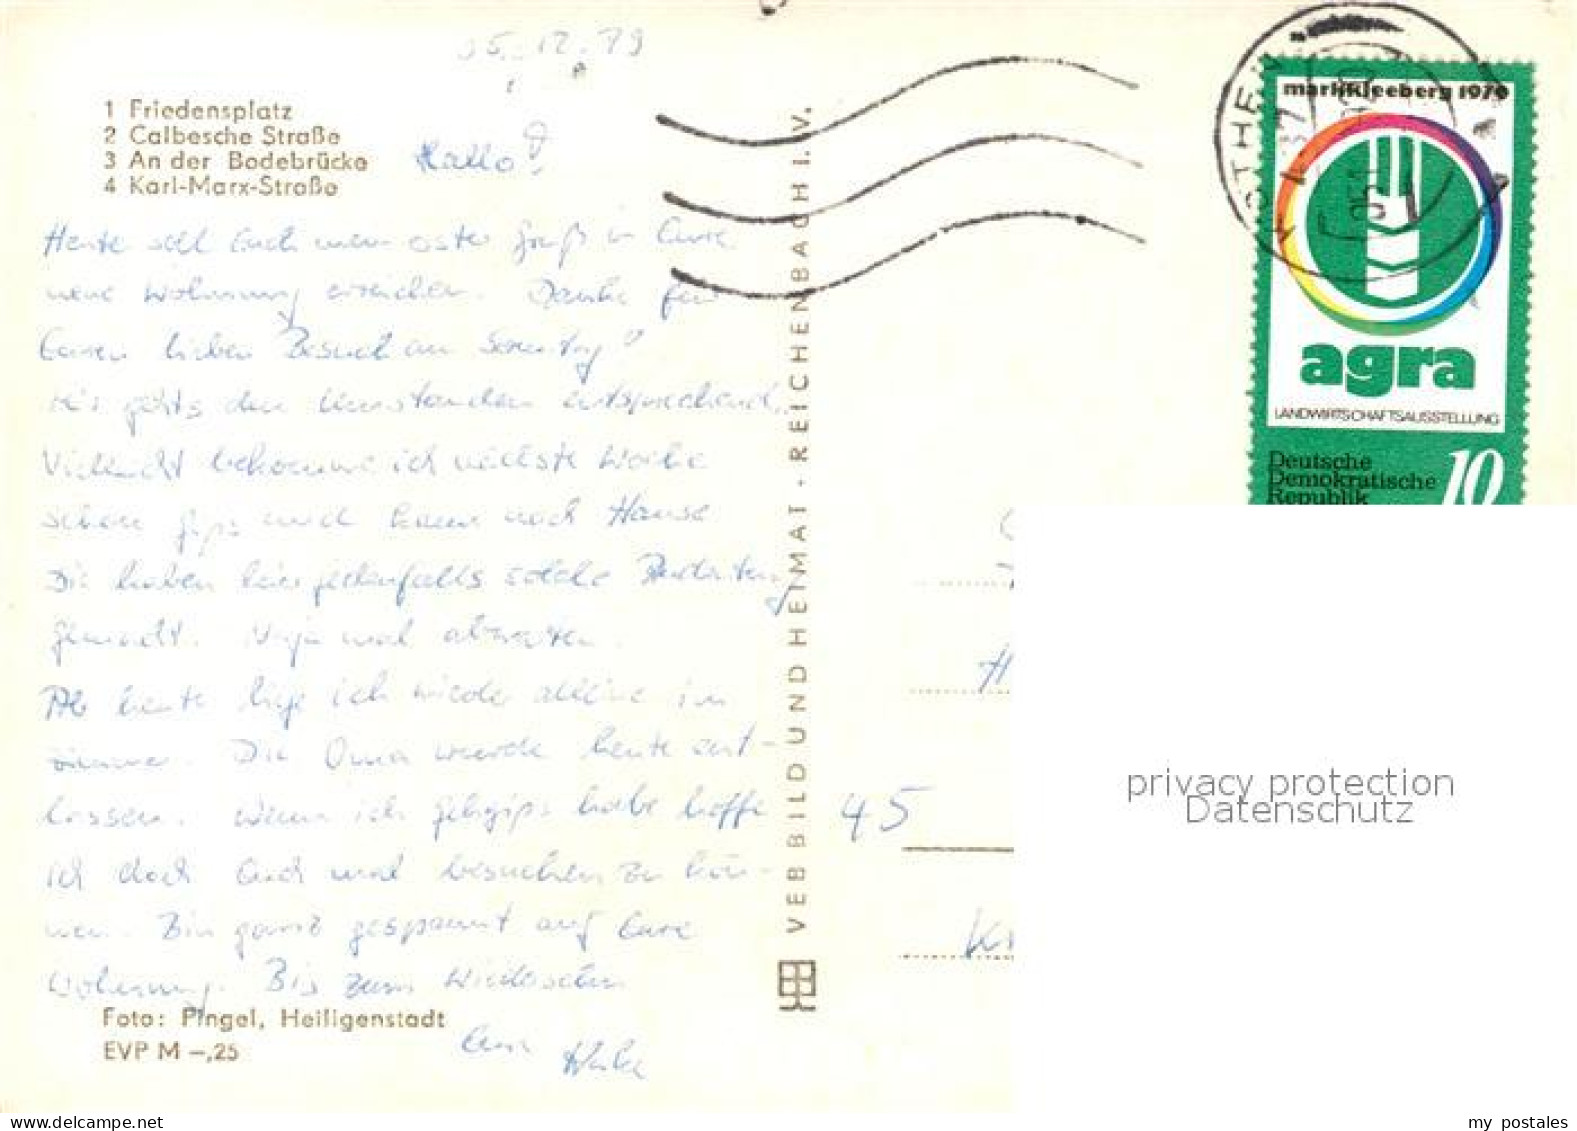 05.12.79
1 Friedensplatz
2 Calbesche Straße
3 An der Bodebrücke
4 Karl-Marx-Straße
Hallo!
Heute soll Euch mein erster Gruß in Eure
neue Wohnung erreichen. Danke für
Euren lieben Besuch am Sonntag!
Mir gehts den Umständen entsprechend.
Vielleicht bekomme ich nächste Woche
schon gips und kann nach Hause
Die haben hier jedenfalls solche Andeutung
gemacht. Naja mal abwarten.
Ab heute liege ich wieder alleine im
zimmer. Die Oma wurde heute ent-
lassen. Wenn ich gehgips habe hoffe
ich doch Euch mal besuchen zu kön-
nen. Bin ganz gespannt auf Eure
Wohnung. Bis zum Wiedersehen
Eure
Foto: Pingel, Heiligenstadt
EVP M –,25
VEB BILD UND HEIMAT · REICHENBACH I. V.
KÖTHEN
437
markkleeberg 1978
agra
LANDWIRTSCHAFTSAUSSTELLUNG
Deutsche
Demokratische
Republik
10
H
45
privacy protection
Datenschutz
my postales